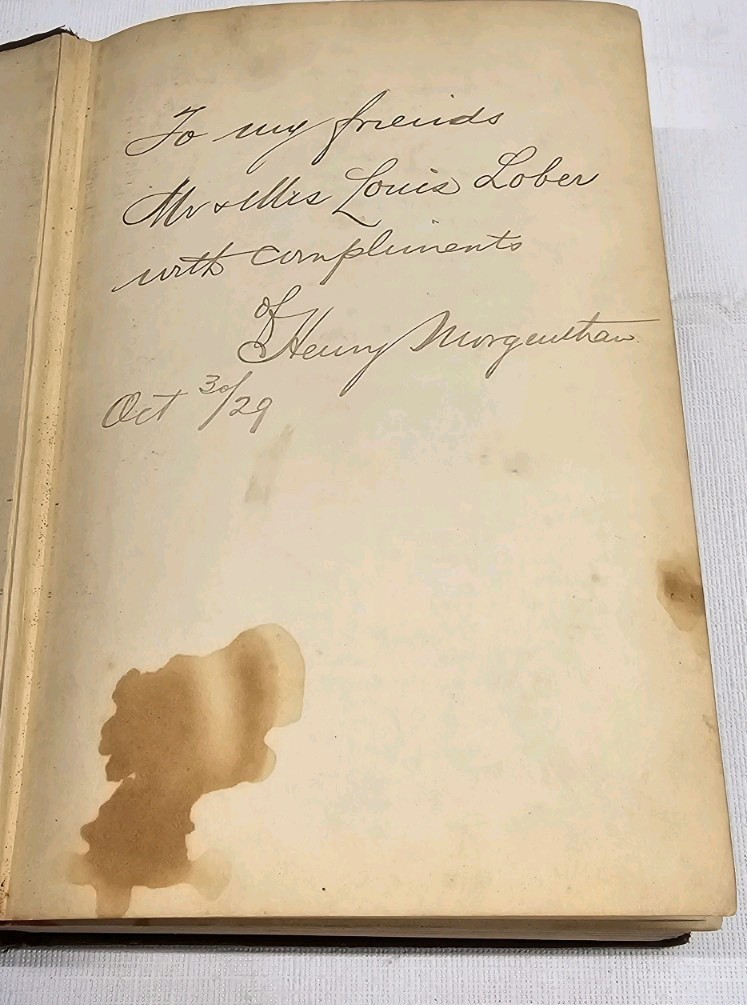 To my friends
Mr & Mrs Louis Lober
with compliments
of
Henry Morgenthau
Oct 30/29